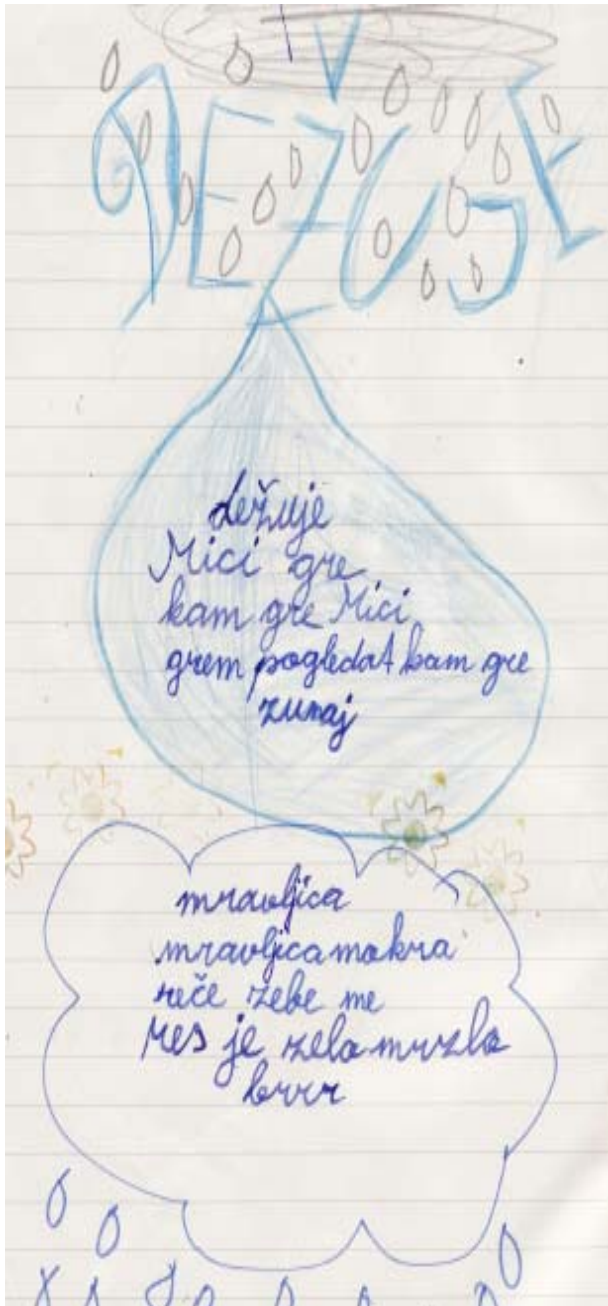 DEŽUJE
dežuje
Mici gre
kam gre Mici
grem pogledat kam gre
zunaj
mravljica
mravljica mokra
reče zebe me
res je zelo mrzlo
brrr